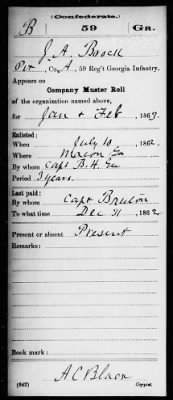 (Confederate.)
B 59 Ga.
J. A. Brock
Pvt, Co. A, 59 Reg't Georgia Infantry.
Appears on
Company Muster Roll
of the organization named above,
for Jan & Feb, 186
Enlisted:
When July 10, 1862.
Where Macon Ga
By whom Capt B. H.
Period 3 years.
Last paid:
By whom Capt Bruton
To what time Dec 31, 186
Present or absent Present
Remarks:
Book mark:
(642) A C Black
Copyist.